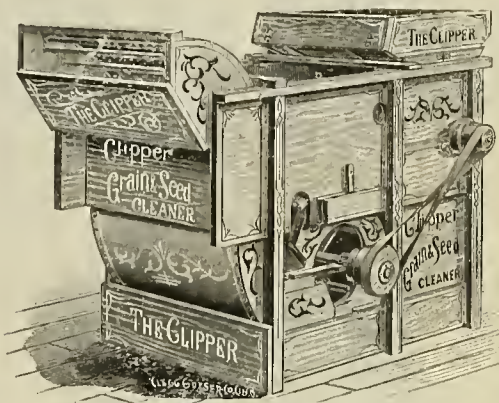 THE CLIPPER
THE CLIPPER
Clipper
Grain & Seed
CLEANER
Clipper
Grain & Seed
CLEANER
THE CLIPPER